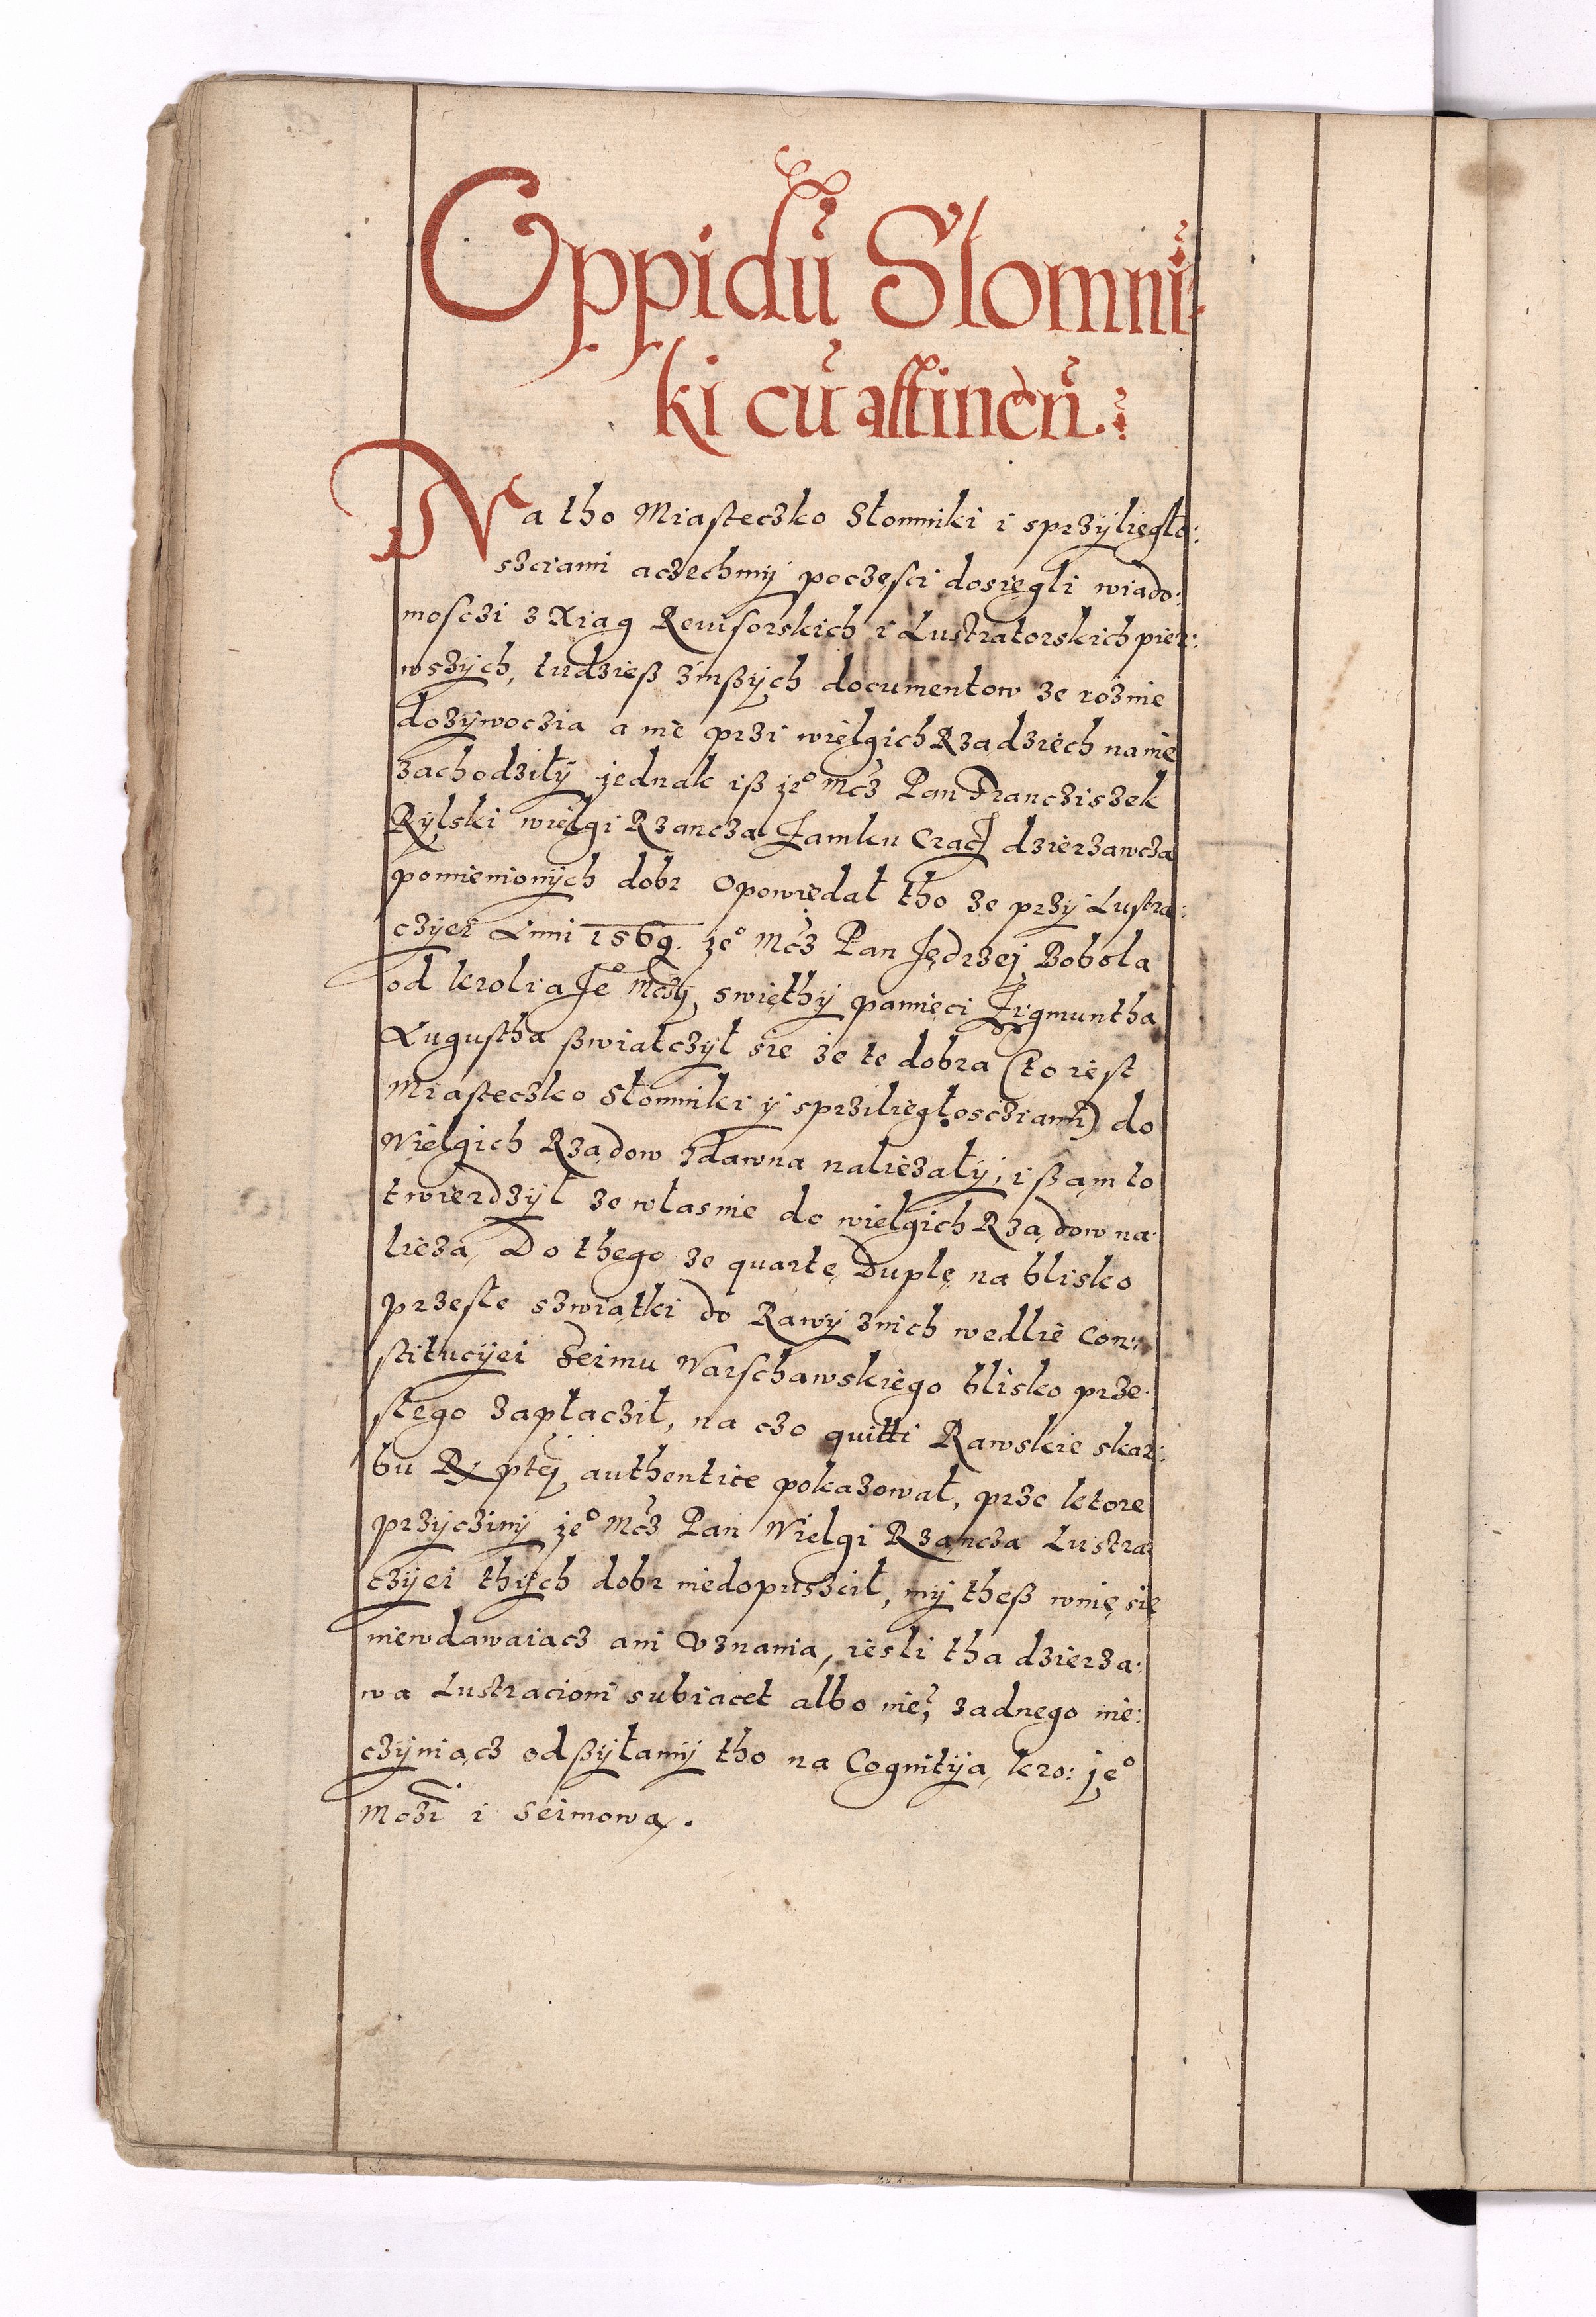 Oppidũ Slomni:
ki cũ attinen̄.
Na tho Miasteczko Słomniki i sprzÿliegło:
szciami aczechmÿ poczęsci dosięgli wiado:
mosczi z Xiąg Reuisorskich i Lustratorskich pier:
wszÿch, tudzieß zinßÿch documentow ze rożnie
dożÿwoczia a nie przi wielgich Rządziech na nię
zachodziłÿ jednak iß jeº Mcz Pan Franciszek
Rÿlski wielgi Rządcza Zamku Crac dzierzawcza
pomienionÿch dobr Opowiedał tho że przÿ Lustra:
czÿei Anni 1569. jeº Mcz Pan Jędrzej Bobola
od krolia Jeº Mczÿ swięthÿ pamięci Zigmuntha
Augustha ßwiatczÿł się że te dobra (to iest
Miasteczko Słomniki ÿ sprziliegłosciziami) do
Wielgich Rządow zdawna należałÿ, i ßam to
twierdzÿł że własnie do wielgich Rządow na:
lieżą, Do thego że quartę Duplę na blisko
przeszłe szwiątki do Rawÿ znich wedlie Con:
stitucÿei Seimu Warschawskiego blisko prze:
szłego zapłacził, na czo quitti Rawskie skar:
bu R. ptej authentice pokazował, prze ktore
przÿczinÿ jeº Mcz Pan Wielgi Rządcza Lustra:
czÿei thÿch dobr niedopuszcił, mÿ theß wnię się
niewdawaiącz ani Vznania, iesli tha dzierza:
wa Lustracioni subiacet albo nie, żadnego nie:
czÿniącz odßÿłamÿ tho na Cognitÿą kro: jeº
Mczi i Seimową.